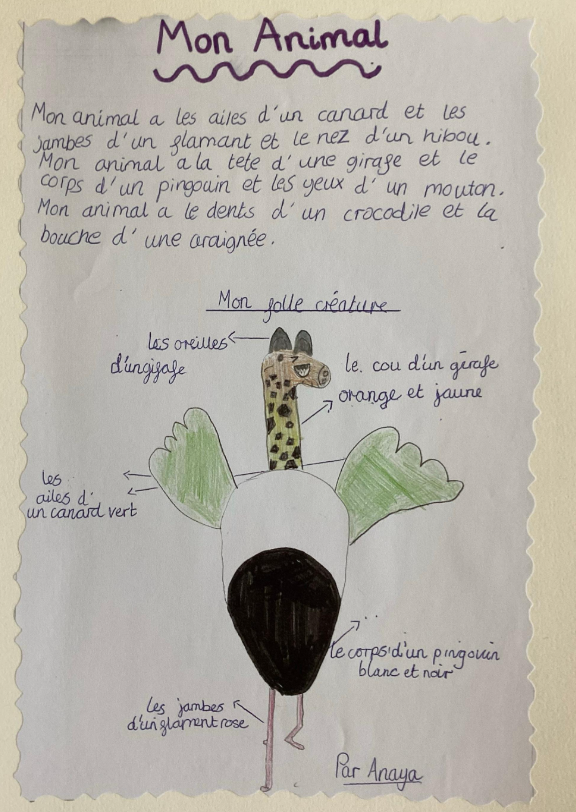 Mon Animal
Mon animal a les ailes d'un canard et les
jambes d'un flamant et le nez d'un hibou.
Mon animal a la tete d'une girafe et le
corps d'un pingouin et les yeux d'un mouton.
Mon animal a le dents d'un crocodile et la
bouche d'une araignée.
Mon folle créature
les oreilles
d'ungigafe
le. cou d'un gérafe
orange et jaune
les
ailes d'
un canard vert
le corps d'un pingouin
blanc et noir
les jambes
d'un flament rose
Par Anaya